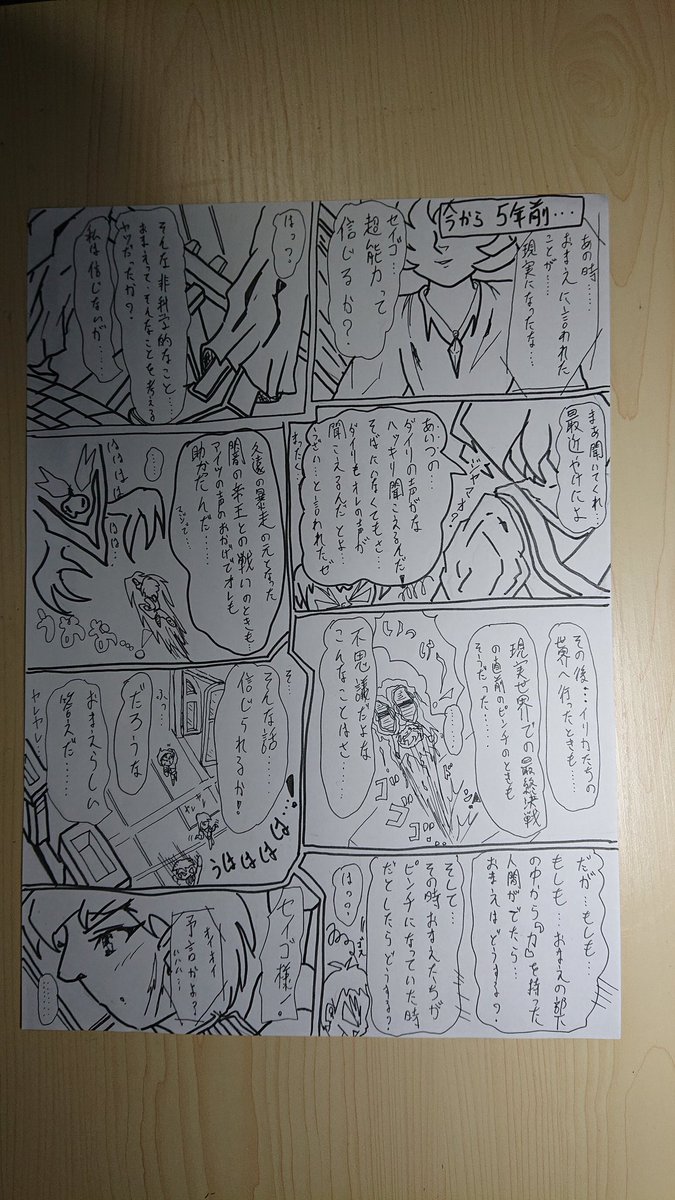 今から 5年前…
あの時……
おまえに言われた
ことが……
現実になったな…
セイゴ…
超能力って
信じるか？
はっ？
そんな非科学的なこと……
おまえって、そんなことを考える
ヤツだったか？
私は信じないが……
まぁ聞いてくれ…
最近やけによ
ジャマオ？
あいつの…
ダイリの声がな
ハッキリ聞こえるんだ！
そばにいなくてもさ…
ダイリもオレの声が
聞こえるんだとよ…
うざい…と言われたぜ
まったく…
久遠の暴走の元となった
闇の帝王との戦いのときも…
アイツの声のおかげでオレも
助かったんだ……
マジで…
……
はははは
はは…
うおおお…
その後…イリカたちの
世界へ行ったときも…
現実世界での最終決戦
の直前のピンチのときも
そうだった…
不思議だよな
こんなことはさ…
……
ゴゴゴ
ゴゴゴ
そ…
そんな話……
信じられるか！
ふっ…
だろうな
おまえらしい
答えだ……
ヤレヤレ
うはははは
だが…もしも…
もしも…おまえの部下
の中から「力」を持った
人間がでたら…
おまえはどうするの？
そして…
その時おまえたちが
ピンチになっていた時
だとしたらどうする？
はっ？
セイゴ様！
オイオイ
予言かよ？
ハハハ…
………